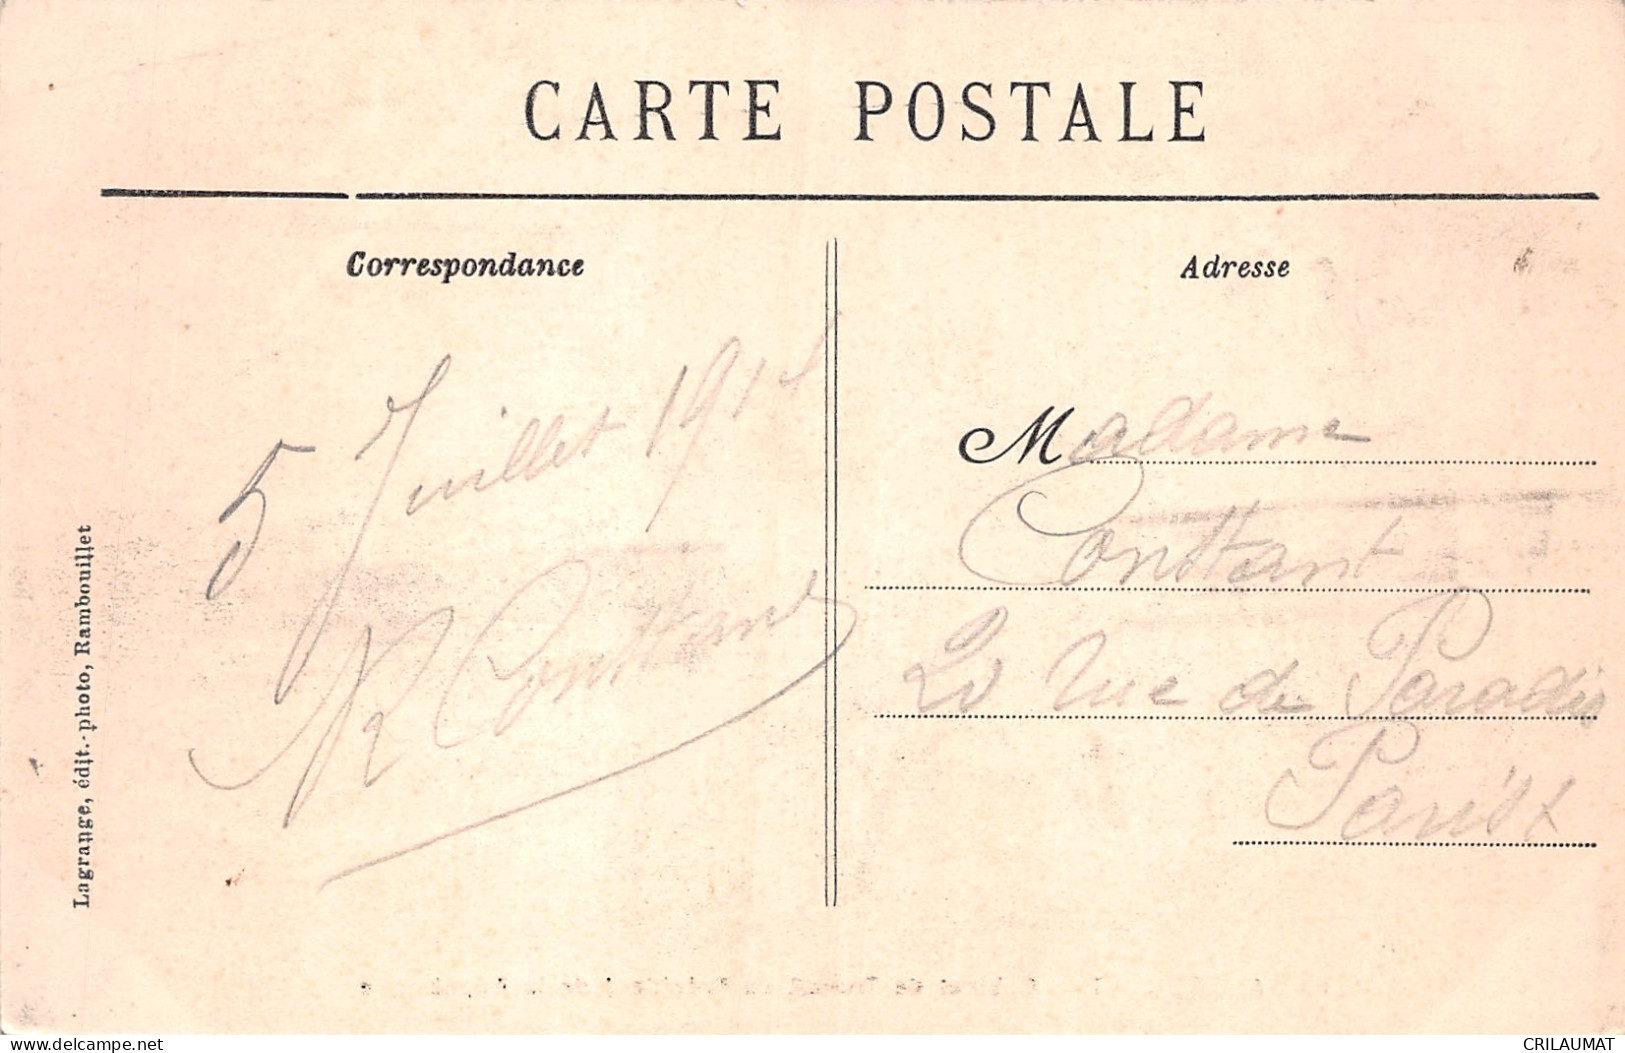 CARTE POSTALE
Correspondance
Adresse
5 Juillet 191
Constant
Madame
Constant
rue de Paradis
Paris
Lagrange, édit.-photo, Rambouillet
delcampe.net
CRILAUMAT